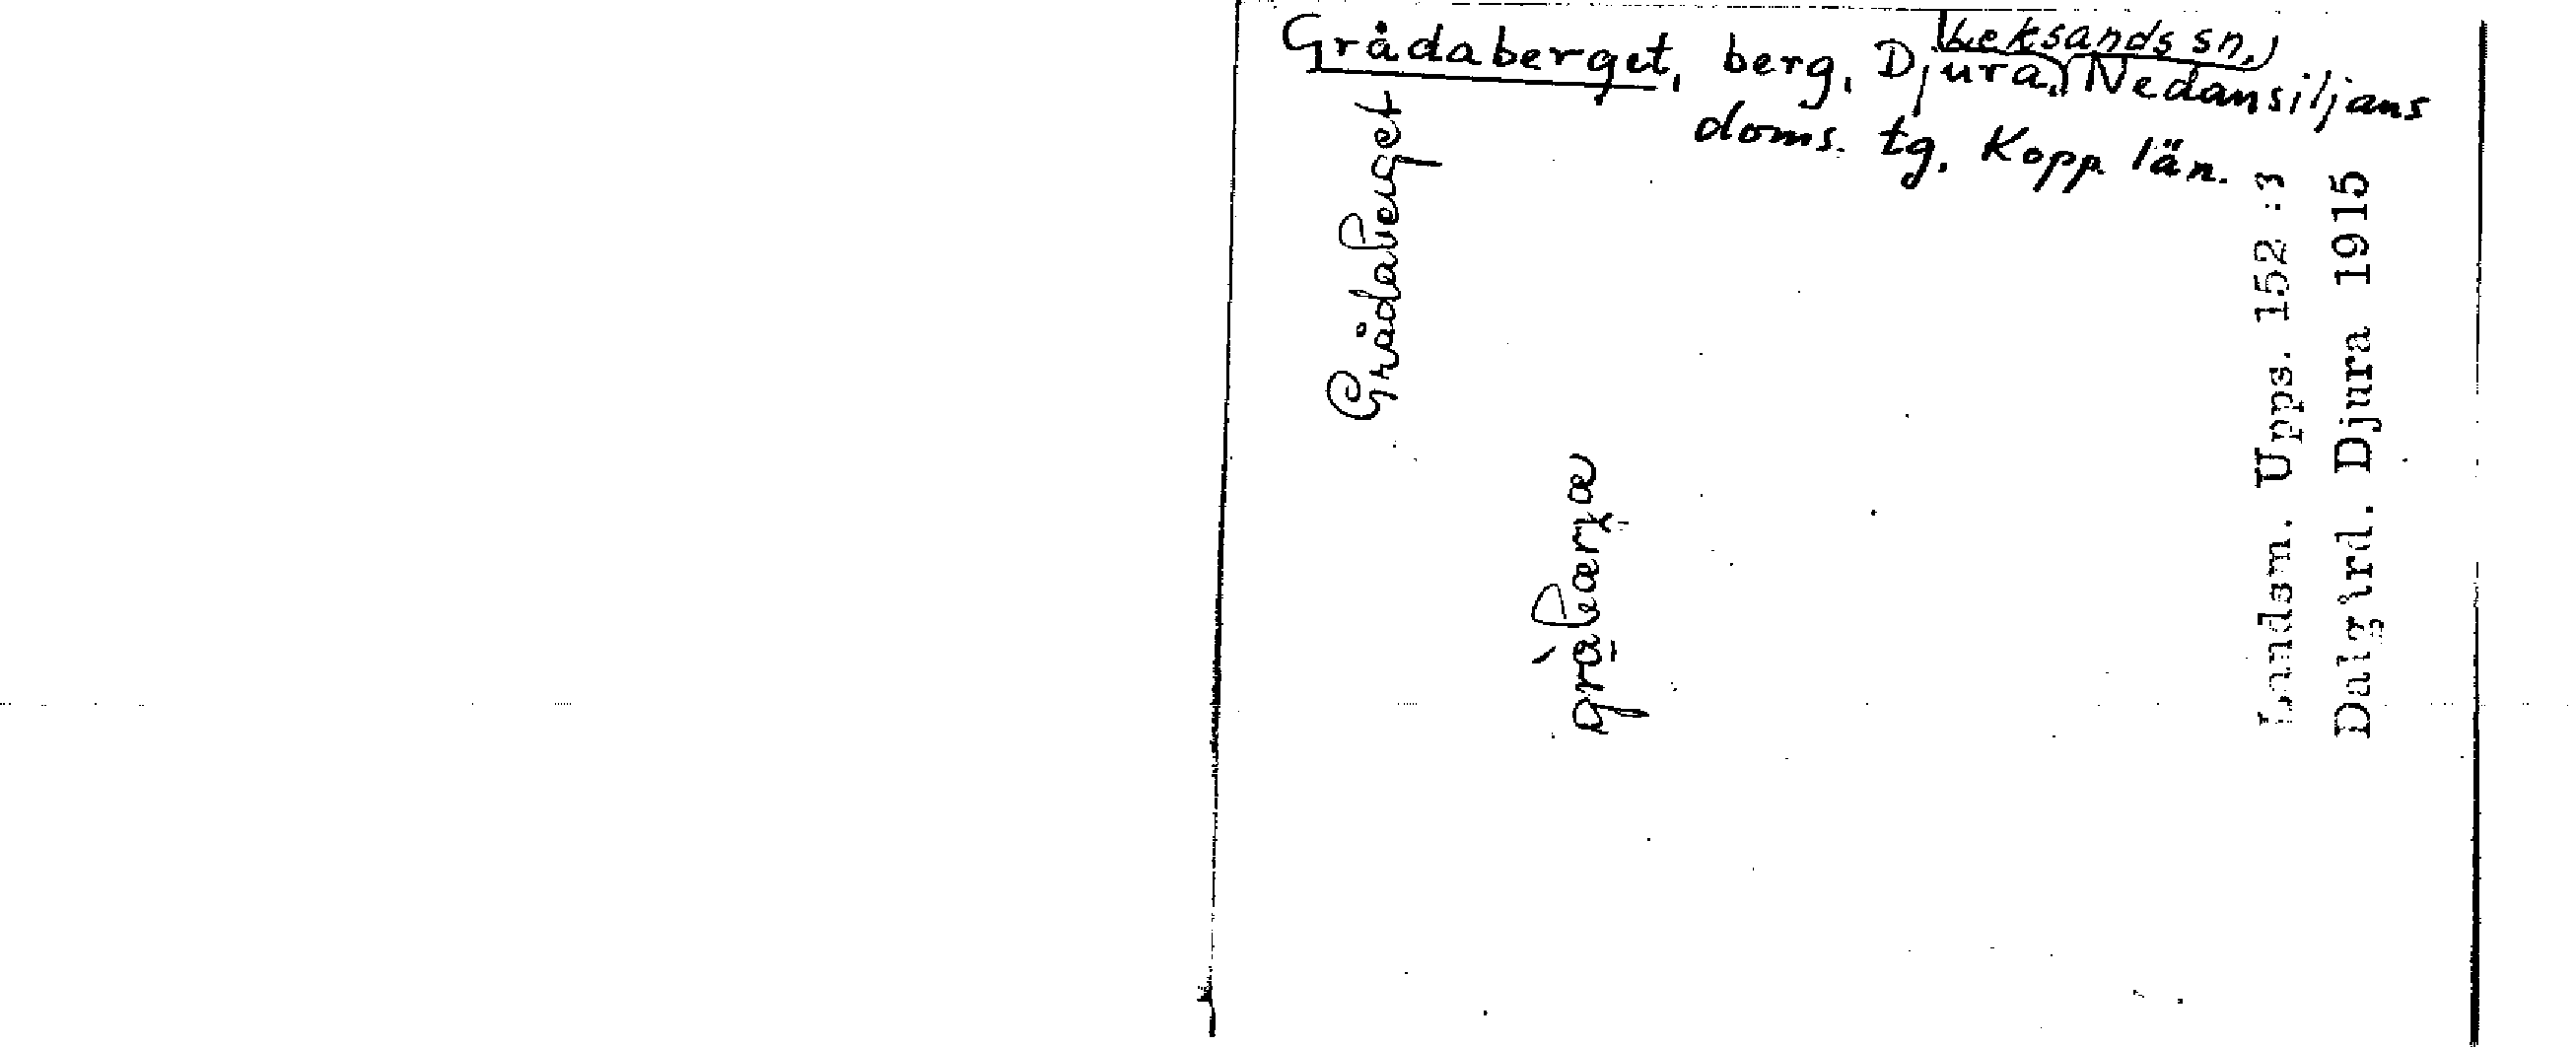 Grådaberget, berg, Djura, (Leksands sn,) Nedansiljans
doms. tg. Kopp. län.
Grådaberget
Landsm. Upps. 152:3
Dalgård. Djura 1915